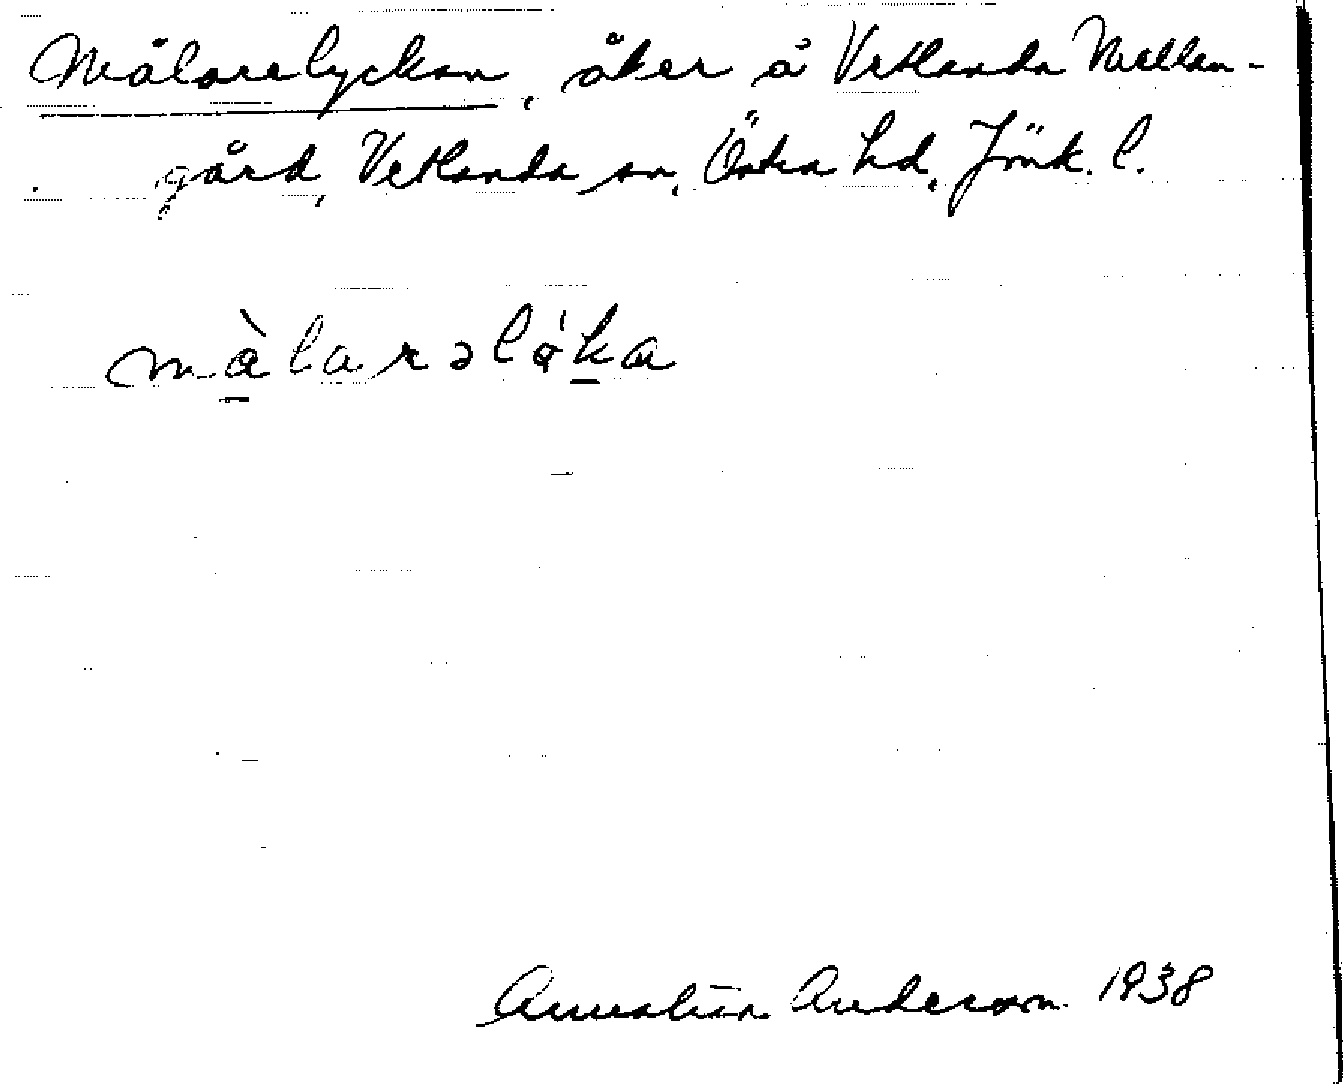 Målarelyckan, åker å Vetlanda Mellan-
gård, Vetlanda sn, Östra hd, Jönk. l.
màlarəlỏka
Annalisa Anderson 1938